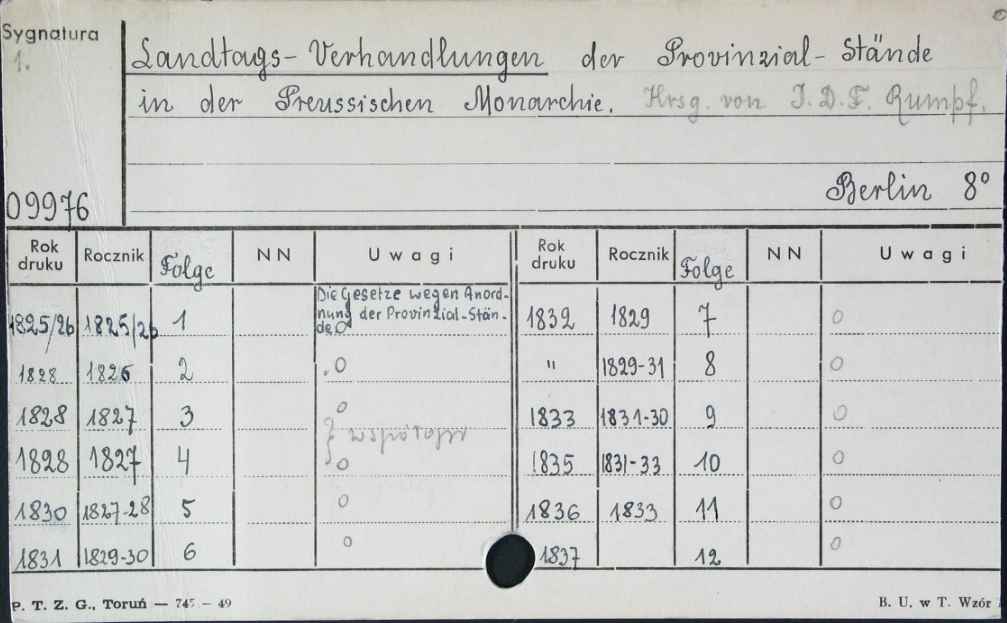 Sygnatura
1.
09976
Landtags-Verhandlungen der Provinzial-Stände
in der Preussischen Monarchie. Hrsg. von J. D. F. Rumpf.
Berlin 8°
Rok druku Rocznik Folge NN Uwagi
1825/26 1825/26 1 Die Gesetze wegen Anord-
nung der Provinzial-Stän-
de. O
1828 1826 2 O
1828 1827 3 O
} współopr
1828 1827 4 O
1830 1827-28 5 O
1831 1829-30 6 O
Rok druku Rocznik Folge NN Uwagi
1832 1829 7 O
" 1829-31 8 O
1833 1831-30 9 O
1835 1831-33 10 O
1836 1833 11 O
1837 12 O
P. T. Z. G., Toruń — 745 — 49
B. U. w T. Wzór